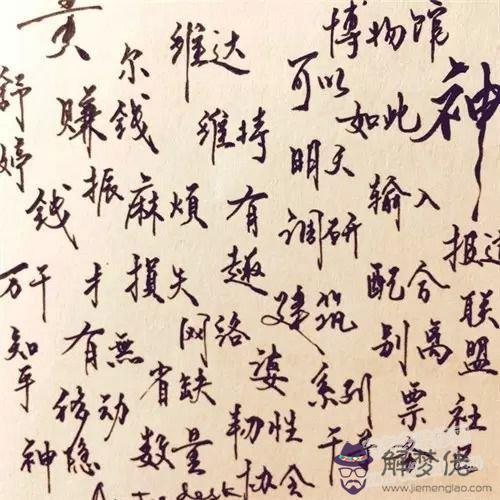 黄
尔
维达
博物馆
神
舒婷
赚钱
维持
可以
如此
钱
振
麻烦
有趣
明天
调研
输入
报道
万千
才
损失
建筑
配合
联盟
知乎
有無
网络
别离
省缺
婆
系列
票
社
神隐
移动
数量
韧性
协会
解梦佬
www.jiemenglao.com